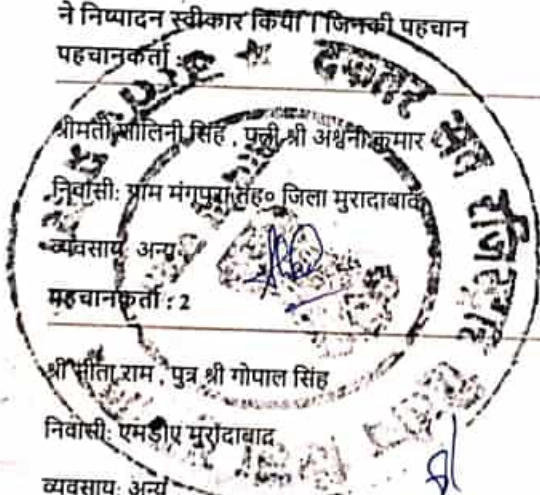 ने निष्पादन स्वीकार किया । जिनकी पहचान
पहचानकर्ता :
श्रीमती शालिनी सिंह , पत्नी श्री अश्वनी कुमार
निवासी: ग्राम मंगूपुरा तह० जिला मुरादाबाद
व्यवसाय: अन्य
पहचानकर्ता : 2
श्री सीता राम , पुत्र श्री गोपाल सिंह
निवासी: एमडीए मुरादाबाद
व्यवसाय: अन्य
दफ्तर सब रजिस्ट्रार